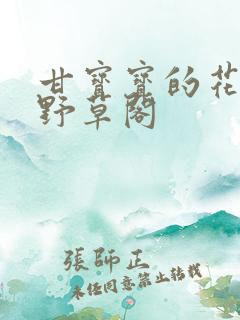 甘寶寶的花
野草閣
張師正
未任同意禁止轉載